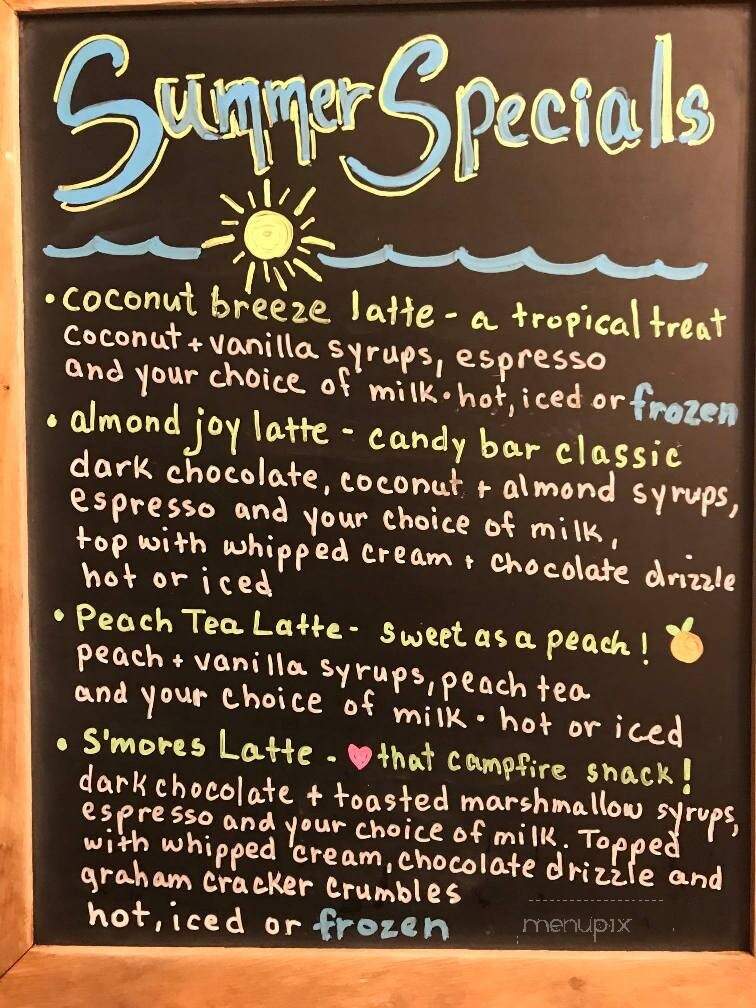 Summer Specials
• coconut breeze latte - a tropical treat
coconut + vanilla syrups, espresso
and your choice of milk • hot, iced or frozen
• almond joy latte - candy bar classic
dark chocolate, coconut + almond syrups,
espresso and your choice of milk,
top with whipped cream + chocolate drizzle
hot or iced
• Peach Tea Latte - sweet as a peach!
peach + vanilla syrups, peach tea
and your choice of milk • hot or iced
• S'mores Latte - ♥ that campfire snack!
dark chocolate + toasted marshmallow syrups,
espresso and your choice of milk. Topped
with whipped cream, chocolate drizzle and
graham cracker crumbles
hot, iced or frozen
menupix